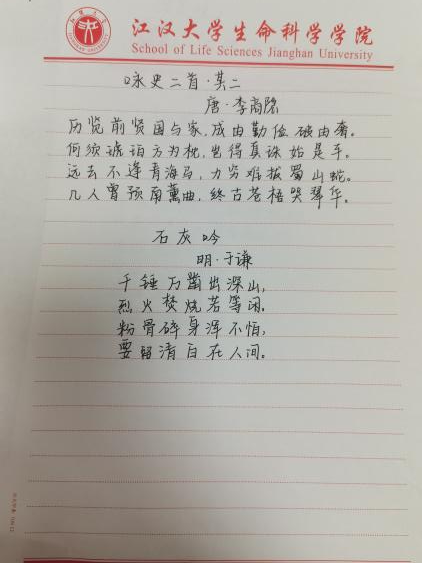 江汉大学生命科学学院
School of Life Sciences Jianghan University
咏史二首·其二
唐·李商隐
历览前贤国与家,成由勤俭破由奢。
何须琥珀方为枕,岂得真珠始是车。
远去不逢青海马,力穷难拔蜀山蛇。
几人曾预南薰曲,终古苍梧哭翠华。
石灰吟
明·于谦
千锤万凿出深山,
烈火焚烧若等闲。
粉骨碎身浑不怕,
要留清白在人间。